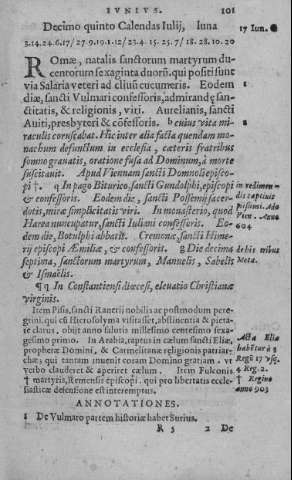 IVNIVS. 101
Decimo quinto Calendas Iulij, luna 17 Iun.
3.14.24.6.17/ 27 9.10.1.12/ 23.4 15.25.7/ 18.28.10.20
ROmæ, natalis sanctorum martyrum du-
centorum sexaginta duorũ, qui positi sunt
via Salaria veteri ad cliuũ cucumeris. Eodem
die, sancti Vulmari confessoris, admirandę san-
ctitatis, & religionis, viri. Aurelianis, sancti
Auiti, presbyteri & cōfessoris. Huius vita mi-
raculis coruscabat. Hic inter acta facta quendam mo-
nachum defunctum in ecclesia, cæteris fratribus
somno granatis, oratione fusa ad Dominum, à morte
suscitauit. Apud Viennam sancti Domnoli episco-
pi †. q In pago Biturico, sancti Gundulphi, episcopi
& confessoris. Eodem die, sancti Possennij sacer-
dotis, miræ simplicitatis viri. In monasterio, quod
Harea nuncupatur, sancti Iuliani confessoris. Eo-
dem die, Botulphi abbatis. Cremonæ, sancti Himerij
episcopi Æmiliæ, & confessoris. g Die decima
septima, sanctorum martyrum, Manuelis, Sabelis
& Ismaëlis.
¶ q In Constantiensi diœcesi, eleuatio Christianæ
virginis.
Item Pisis, sancti Ranerij nobilis ac
obijt anno salutis millesimo centesimo sexa-
gesimo primo. In Arabia, raptus in cælum sancti Eliæ,
prophetæ Domini, & Carmelitanæ religionis patriar-
chæ; qui tantam inuenit coram Domino gratiam, vt
verbo clauderet & aperiret cælum. Item Fulconis
† martyris, Remensis episcopi, qui pro libertatis eccle-
siasticæ defensione est interemptus.
ANNOTATIONES.
1 De Vulmaro partem historiæ habet Surius.
R 3 2 De
604
Meta.
Acta Eliæ
4 Reg. 2.
† Regino
anno 903